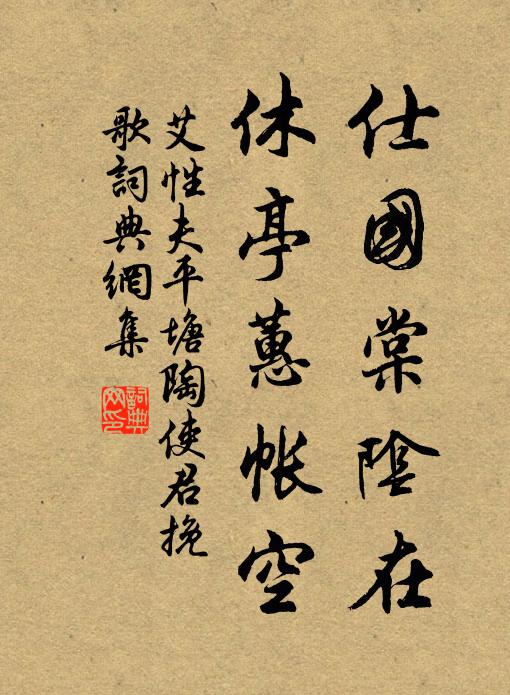 仕國棠陰在
休亭蕙帳空
艾性夫平塘陶使君挽
歌詞典網集
詞典网印